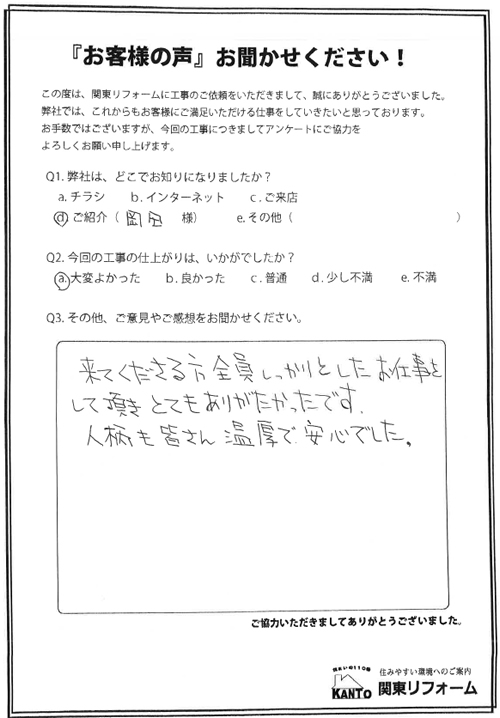 『お客様の声』お聞かせください！
この度は、関東リフォームに工事のご依頼をいただきまして、誠にありがとうございました。
弊社では、これからもお客様にご満足いただける仕事をしていきたいと思っております。
お手数ではございますが、今回の工事につきましてアンケートにご協力を
よろしくお願い申し上げます。
Q1. 弊社は、どこでお知りになりましたか？
a. チラシ　b. インターネット　c. ご来店
d. ご紹介（ 岡田 様）　e. その他（　　　）
Q2. 今回の工事の仕上がりは、いかがでしたか？
a. 大変よかった　b. 良かった　c. 普通　d. 少し不満　e. 不満
Q3. その他、ご意見やご感想をお聞かせください。
来てくださる方全員しっかりとしたお仕事を
して頂きとてもありがたかったです.
人柄も皆さん温厚で安心でした。
ご協力いただきましてありがとうございました。
住みやすい環境へのご案内
KANTO 関東リフォーム